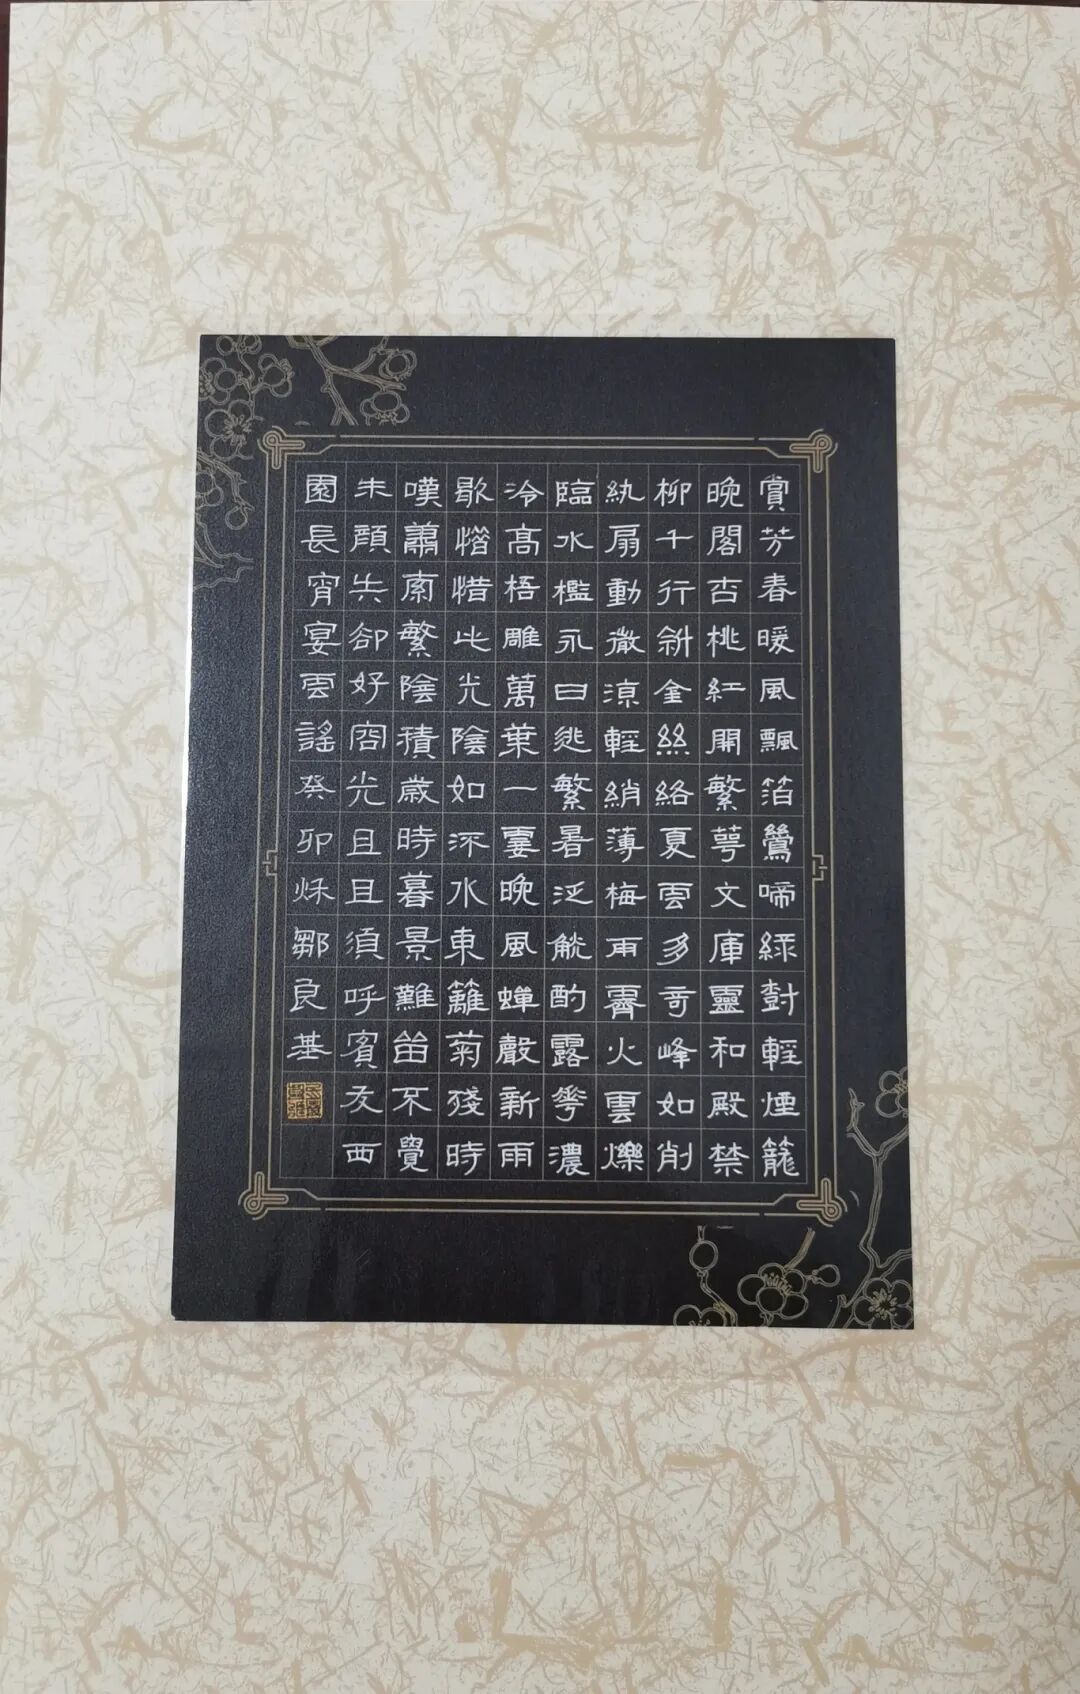 賞芳春暖風飄箔鶯啼綠尌輕煙籠
晚閣杏桃紅開繁萼文庫靈和殿禁
柳千行斜金絲絡夏雲多奇峰如削
紈扇動微涼輕綃薄梅雨霽火雲爍
臨水檻永日逃繁暑泛觥酌露華濃
冷高梧雕萬葉一霎晚風蟬聲新雨
歇惜惜此光陰如流水東籬菊殘時
嘆蕭索繁陰積歲時暮景難留不覺
朱顏失卻好容光且且須呼賓友西
園長宵宴雲謠癸卯秌鄒良基